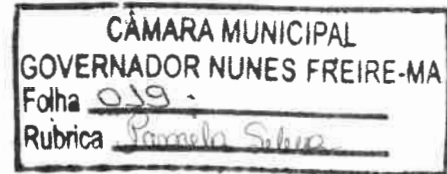 CÂMARA MUNICIPAL
GOVERNADOR NUNES FREIRE-MA
Folha 019.
Rubrica Pamela